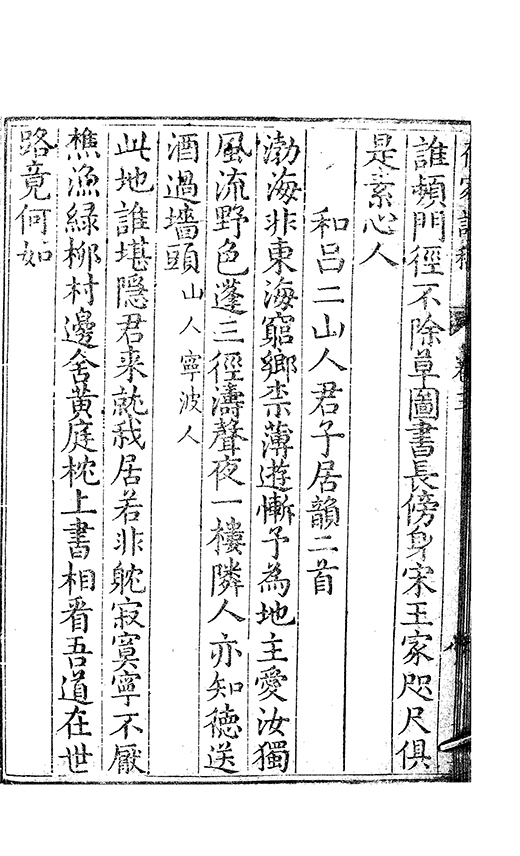 誰頻門徑不除草圖書長傍身宋王家咫尺俱
是素心人
和呂二山人君子居韻二首
渤海非東海窮鄉柰薄遊慚予為地主愛汝獨
風流野色蓬三徑濤聲夜一樓隣人亦知德送
酒過墻頭山人寧波人
此地誰堪隱君来就我居若非躭寂寞寧不厭
樵漁緑栁村邊舍黄庭枕上書相看吾道在世
路竟何如